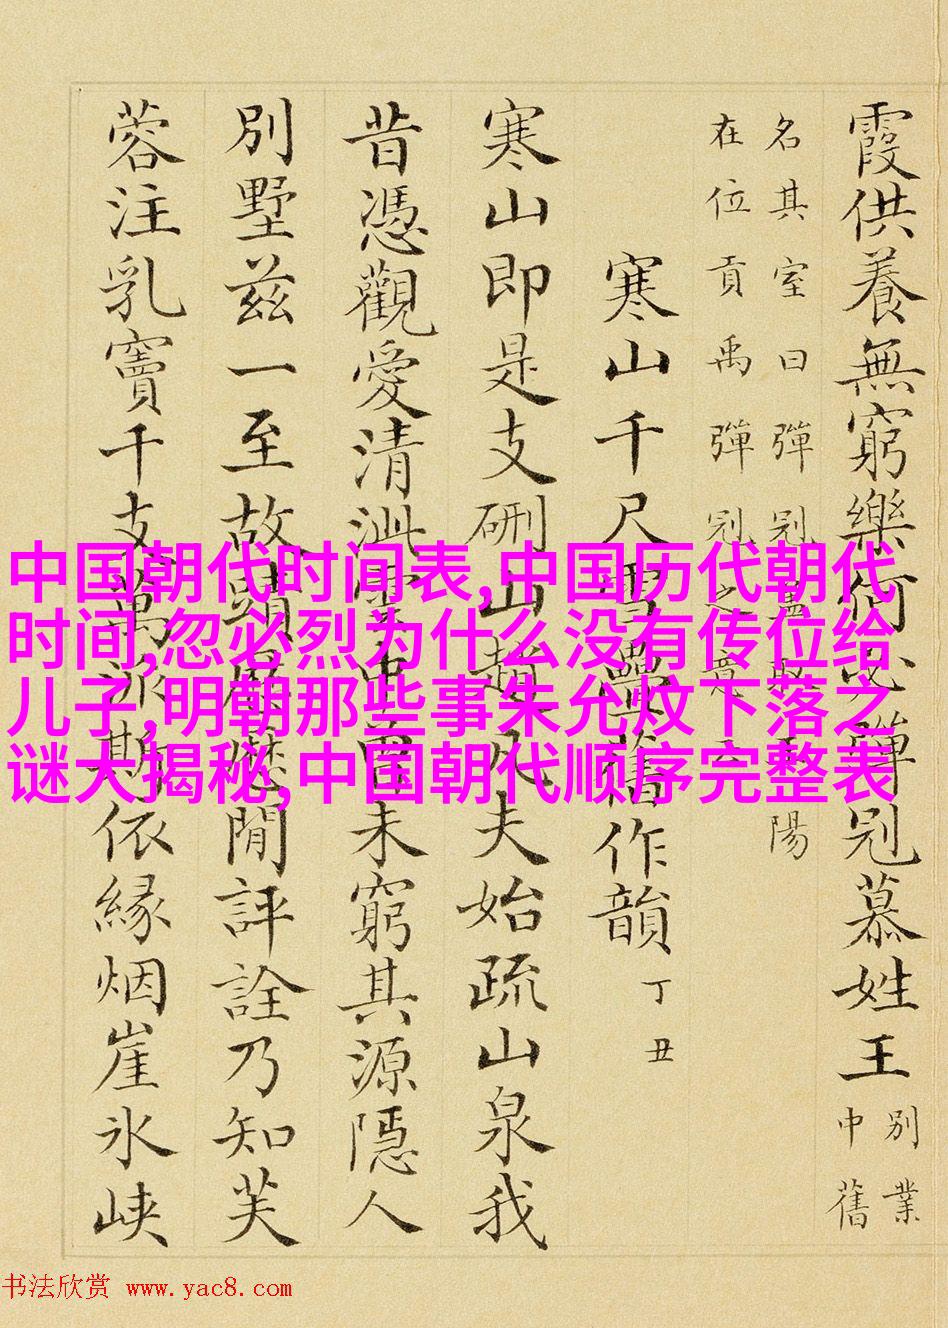 霞供養無窮樂何必彈冠慕姓王
別業
中舊
名其室曰彈冠蓋取王陽
在位貢禹彈冠之意
寒山千尺雪疊舊作韻 丁丑
寒山即是支硎山趙凡夫始疏山泉我
昔憑觀愛清泚未窮其源隱人
別墅茲一至故蹟歷歷閒評詮乃知芙
蓉注乳竇千支萬派斯依緣烟崖氷峽
中国朝代时间表,中国历代朝代
时间,忽必烈为什么没有传位给
儿子,明朝那些事朱允炆下落之
谜大揭秘,中国朝代顺序完整表
书法欣赏 www.yac8.com